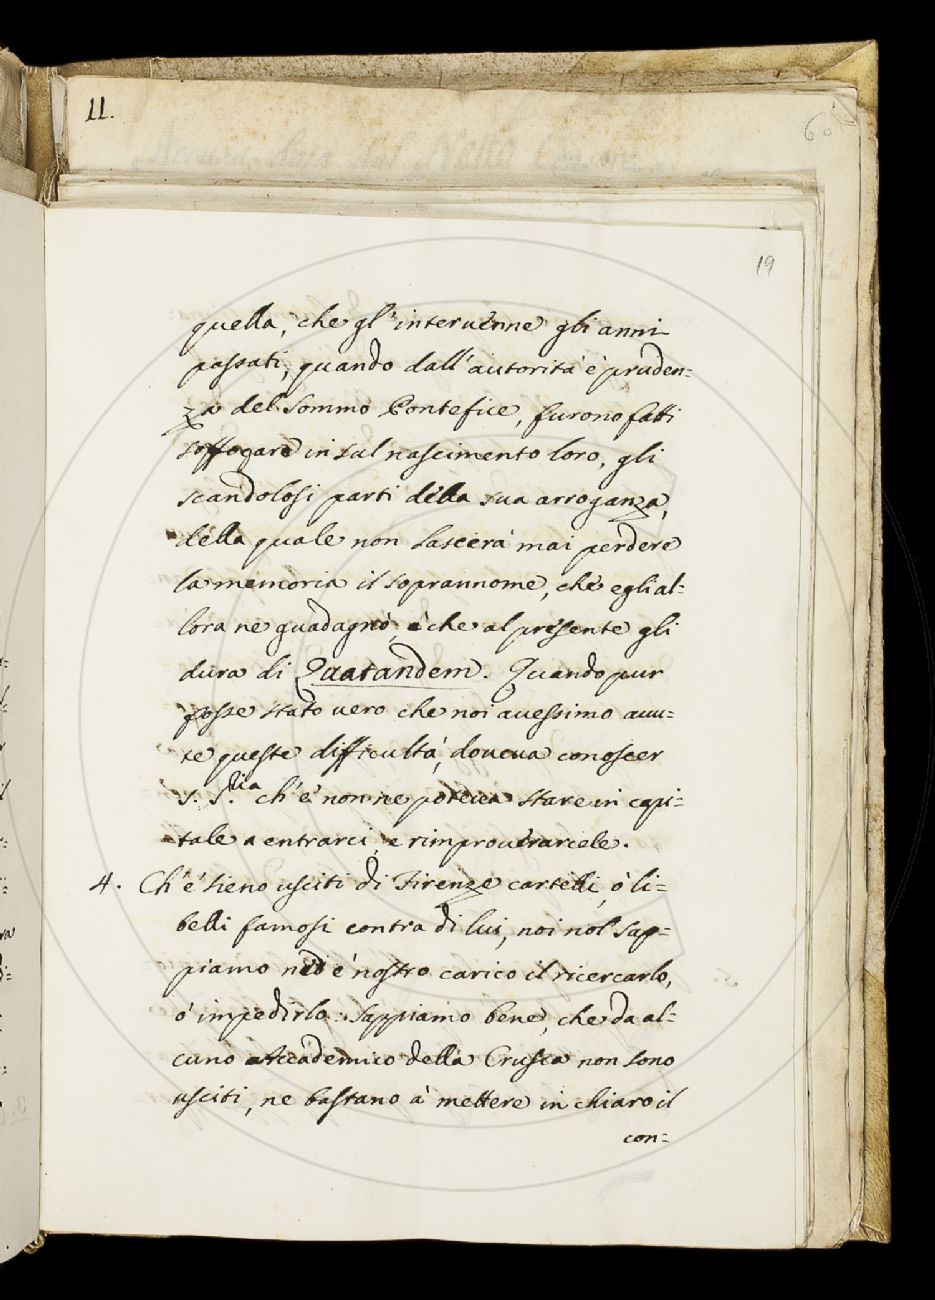 11.
6
19
quella, che gl'interuenne gli anni
passati, quando dall'autorità è pruden=
za del Sommo Pontefice, furono fatti
soffogare in sul nascimento loro, gli
scandolosi parti della sua arroganza,
della quale non lascerà mai perdere
la memoria il soprannome, che egli al=
lora ne guadagnò, e che al presente gli
dura di Quatandem. Quando pur
fosse stato uero che noi auessimo auu=
te queste difficultà, doueua conoscer
S. S.ria ch'è non ne poteua stare in capi=
tale a entrarci, e rimprouerarcele.
4. Ch'è sieno usciti di Firenze cartelli, ò li=
belli famosi contra di lui, noi nol sap=
piamo nè è nostro carico il ricercarlo,
ò impedirlo. Sappiamo bene, che da al=
cuno Accademico della Crusca non sono
usciti, ne bastano à mettere in chiaro il
con=